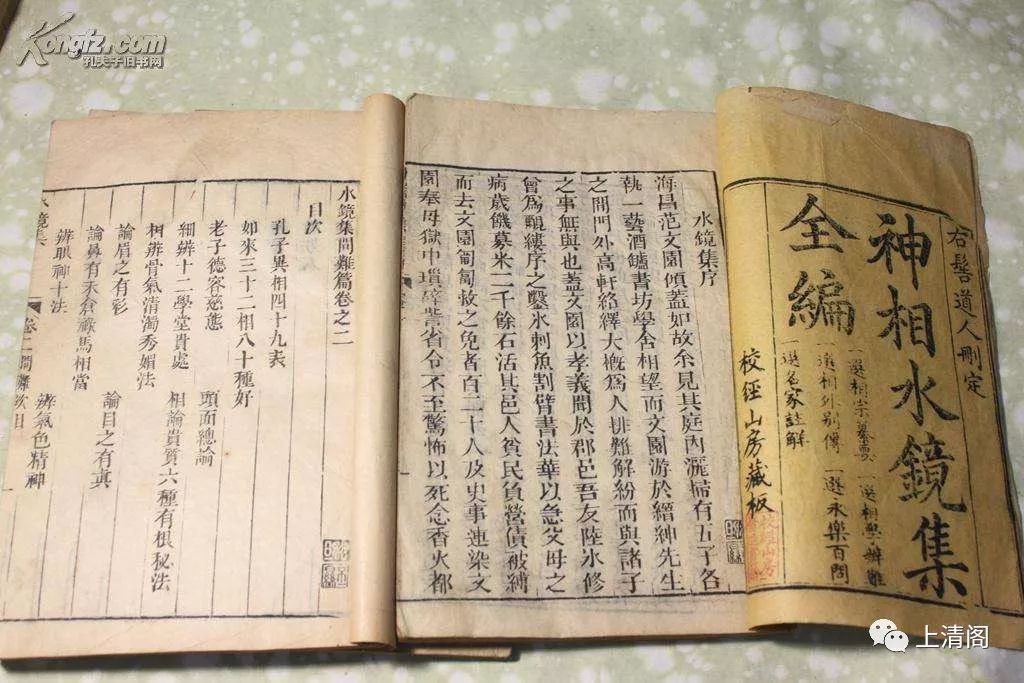 右髻道人刪定
神相水鏡集
全編
一選相宗纂要 一選相學辨難
一選相外別傳 一選永樂百問
一選名家註解
校經山房藏板
水鏡集序
海昌范文園傾蓋如故余見其庭內灑掃有五子各
執一藝酒鑪書坊學舍相望而文園游於縉紳先生
之間門外高軒絡繹大概為人排難解紛而與諸子
之事無與也蓋文園以孝義聞於郡邑吾友陸氷修
曾為覼縷序之鑿氷刺魚割臂書法華以急父母之
病歲饑募米二千餘石活其邑人貧民負營債被縛
而去文園匍匐救之免者百二十人及史事連染文
園奉母獄中瑣 省令不至驚怖以死念香火都
水鏡集問難篇卷之二
目次
孔子異相四十九表
如來三十二相八十種好
老子德容慈態 頭面總論
細辨十二學堂貴處 相論貴質六種有根秘法
相辨骨氣清濁秀媚法
論眉之有彩 論目之有真
論鼻有天倉祿馬相當
辨眼神十法 辨氣色精神
水鏡集 卷二問難次目
Kongfz.com
孔夫子旧书网
上清阁